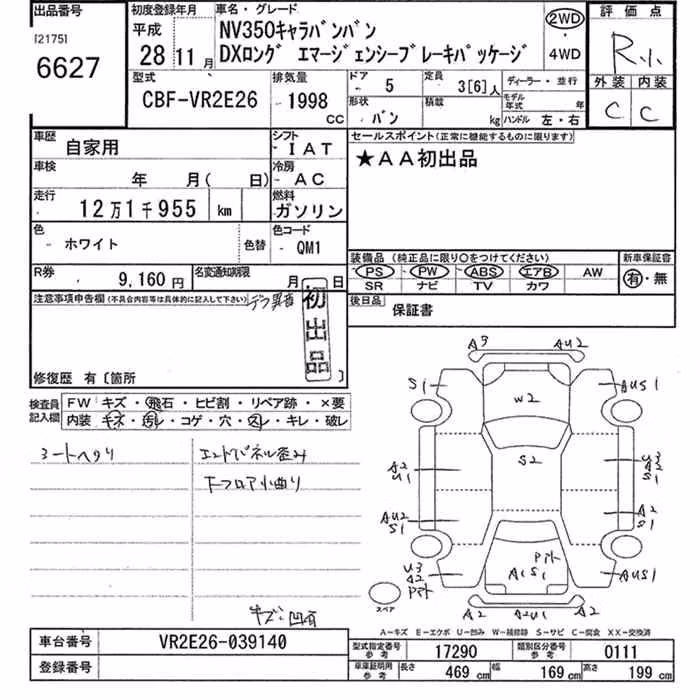 出品番号
[2175]
6627
初度登録年月
平成
28年 11月
車名・グレード
NV350キャラバンバン
DXロング エマージェンシーブレーキパッケージ
2WD
・
4WD
評価点
R小
外装 内装
C C
型式
CBF-VR2E26
排気量
1998
CC
ドア
5
定員
3[6]人
ディーラー・並行
形状
バン
積載
kg
モデル年式 年
ハンドル 左・右
車歴
自家用
シフト
IAT
車検
年 月( 日)
冷房
AC
走行
12万1千955 km
燃料
ガソリン
色
ホワイト
色替
色コード
QM1
R券
9,160円
名変通知期限
月 日
セールスポイント(正常に機能するものに限ります)
★AA初出品
装備品(純正品に限り○をつけてください)
新車保証書
PS PW ABS エアB AW
SR ナビ TV カワ
有・無
後日品
保証書
注意事項申告欄(不具合内容等は具体的に記入して下さい)
デフ異音
初出品
修復歴 有〔箇所 〕
検査員記入欄
FW キズ・飛石・ヒビ割・リペア跡・×要
内装 キズ・汚レ・コゲ・穴・スレ・キレ・破レ
シートヘタリ
エンドパネル歪み
下フロア小曲り
キズ・凹有
A3 AU2
S1 W2 AUS1
S2
A2
U1
U3
A2
S1
AU2
S1
A2
S1
U3
A2
Pアト
Pアト
A1S1
AUS1
スペア
A2 A2U1 A2
A-キズ E-エクボ U-凹み W-補修跡 S-サビ C-腐食 XX-交換済
車台番号
VR2E26-039140
登録番号
型式指定番号
参考
17290
類別区分番号
参考
0111
車庫証明用
参考
長さ 469 cm 幅 169 cm 高さ 199 cm